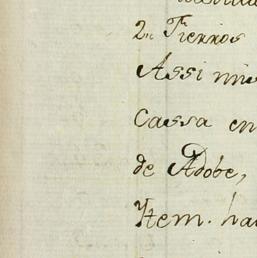 2. Fierros
Assi mis
Cassa en
de Adobe,
Ytem. ha